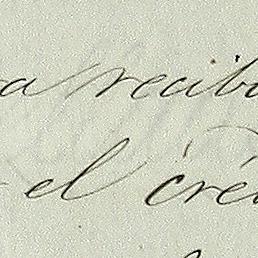 a recib
el cré